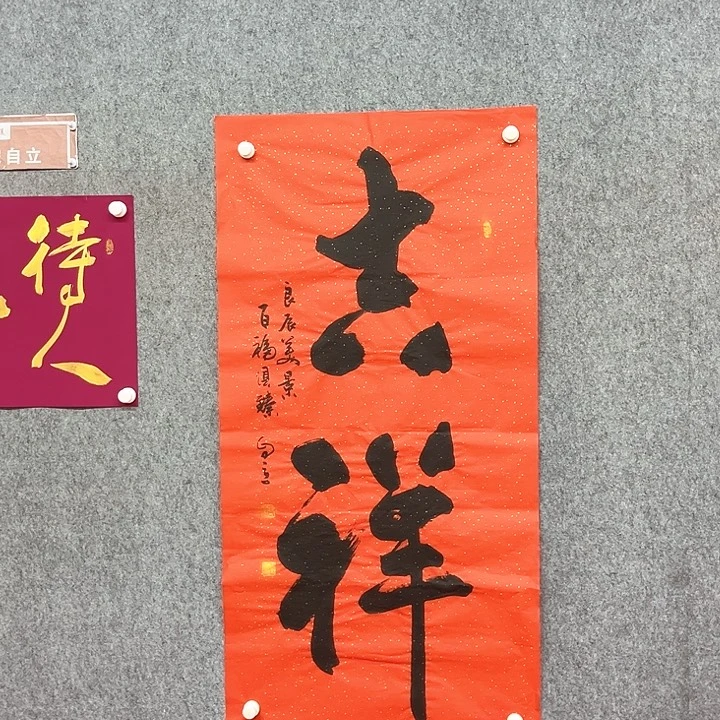 吉祥
良辰美景
百福俱臻
自立
自立
待人